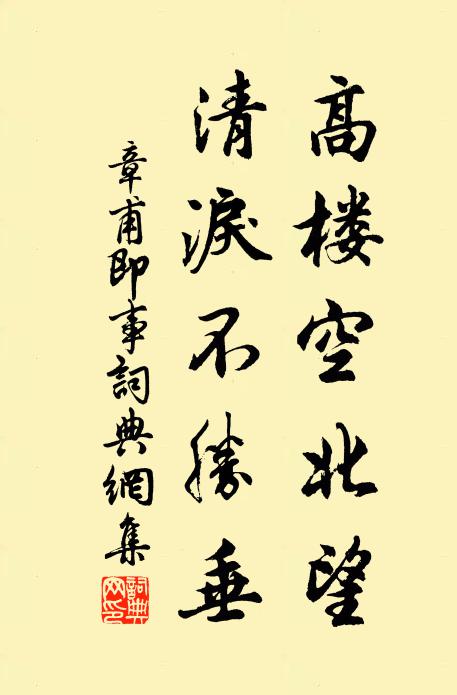 高楼空北望
清淚不勝垂
章甫即事詞典網集
詞典网印